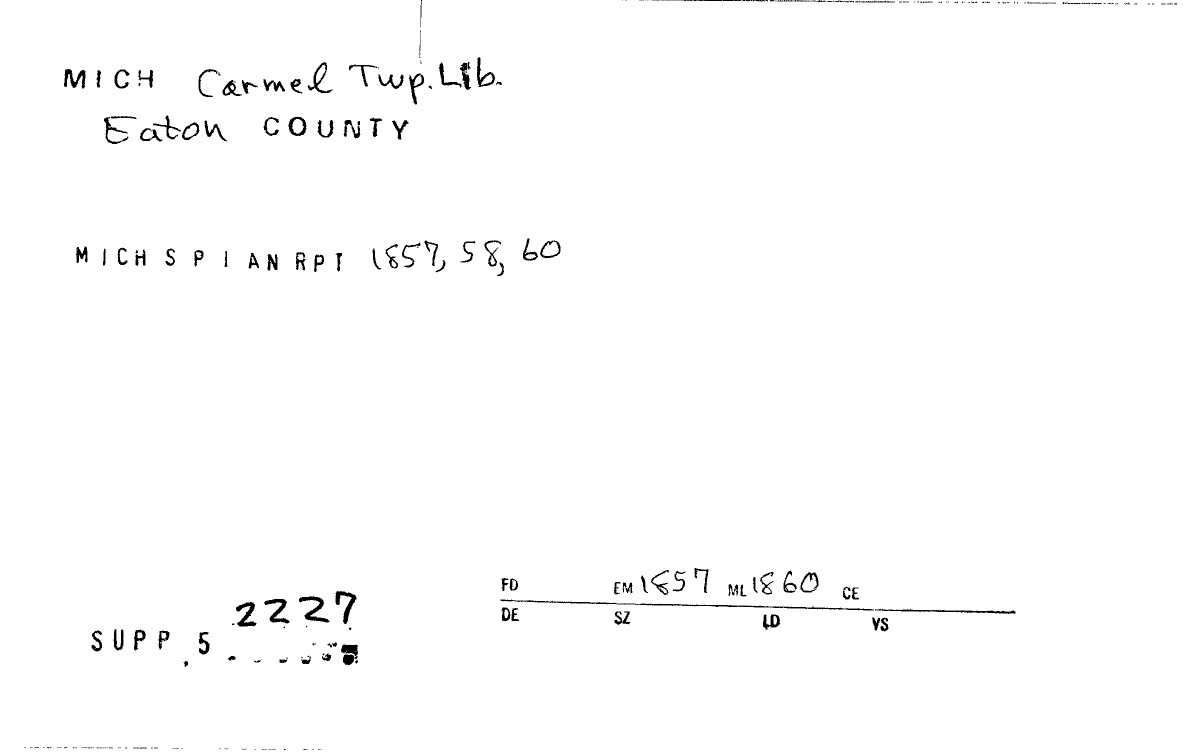 MICH Carmel Twp. Lib.
Eaton COUNTY
MICH S P I AN RPT 1857, 58, 60
2227
SUPP 5
FD EM 1857 ML 1860 CE
DE SZ LD VS